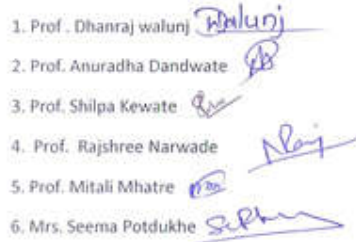 1. Prof . Dhanraj walunj Walunj
2. Prof. Anuradha Dandwate
3. Prof. Shilpa Kewate
4. Prof. Rajshree Narwade
5. Prof. Mitali Mhatre
6. Mrs. Seema Potdukhe